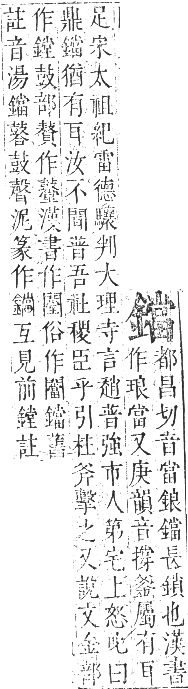 鐺都昌切音當鋃鐺長鎖也漢書
作琅當又庚韻音撐釜屬有耳
足宋太祖紀雷德驤判大理寺言趙普強市人第宅上怒叱曰
鼎鐺猶有耳汝不聞普吾社稷臣乎引柱斧擊之又說文金部
作鏜鼓部作鼞漢書作闛俗作鐺舊
註音湯鐺鼓聲泥篆作鐋互見前鏜註